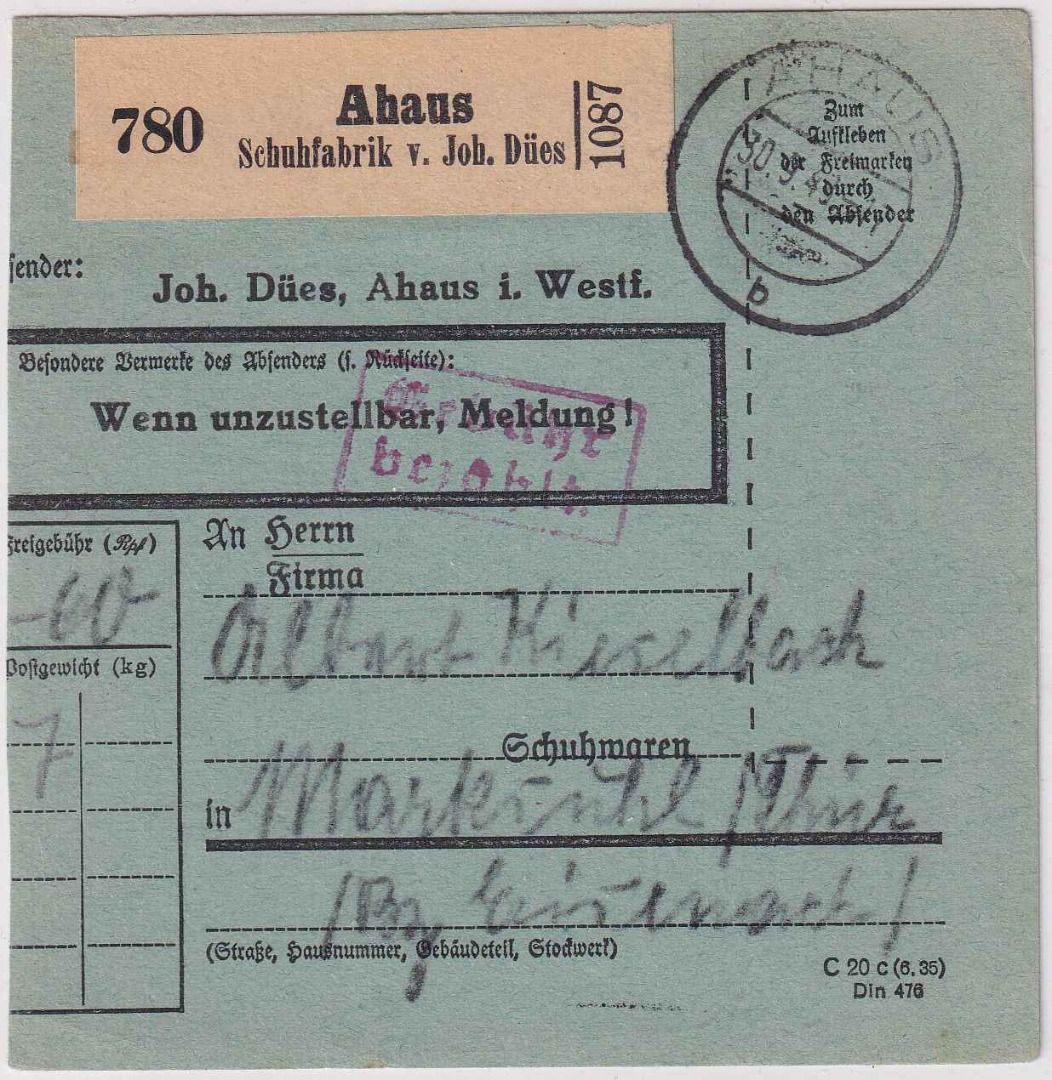 780
Ahaus
Schuhfabrik v. Joh. Dües
1087
AHAUS
30.9.4
b
Zum
Aufkleben
der Freimarken
durch
den Absender
sender:
Joh. Dües, Ahaus i. Westf.
Besondere Vermerke des Absenders (s. Rückseite):
Wenn unzustellbar, Meldung!
Gebühr
bezahlt.
Freigebühr (Rpf)
-60
Postgewicht (kg)
7
An Herrn
Firma
Albert Kieselbach
Schuhwaren
in Marksuhl /Thür
/Bz Eisenach/
(Straße, Hausnummer, Gebäudeteil, Stockwerk)
C 20 c (6.35)
Din 476